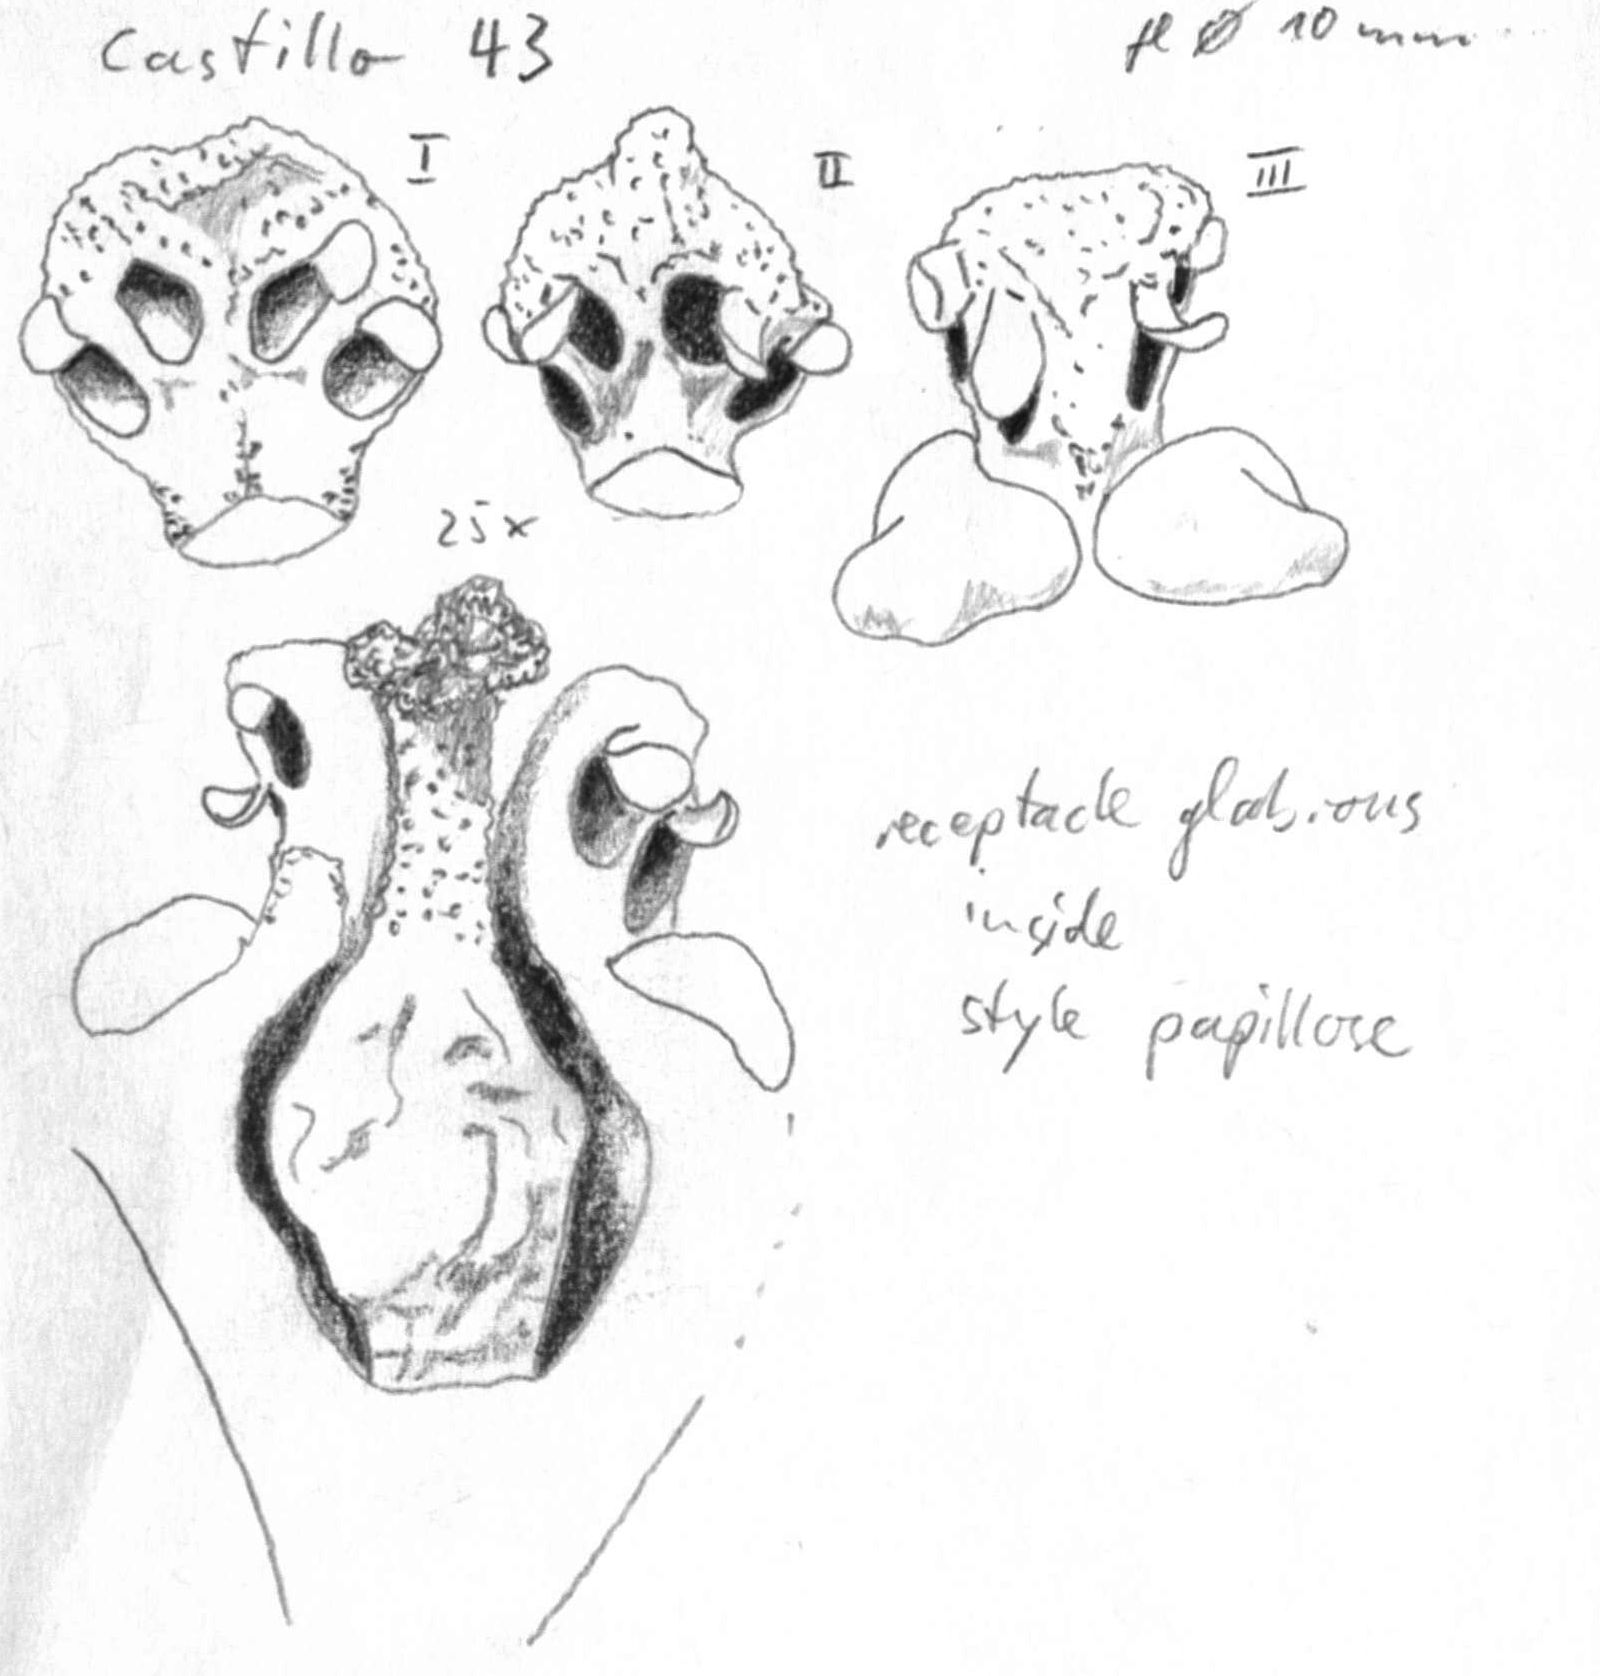 Castillo 43
fl Ø 10 mm
I
II
III
25x
receptacle glabrous
inside
style papillose